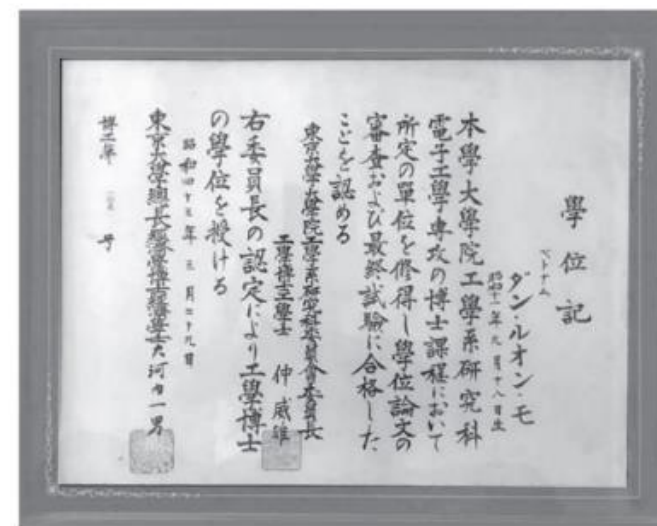 學位記
ベトナム
ダン・ルオン・モ
昭和十一年 月十八日生
本學大學院工學系研究科
電子工學専攻の博士課程において
所定の單位を修得し學位論文の
審査および最終試驗に合格した
ことを認める
東京大學大學院工學系研究科委員會委員長
工學博士工學士 仲威雄
右委員長の認定により工學博士
の學位を授ける
昭和四十三年 月二十九日
東京大學總長經濟學博士經濟學士大河内一男
博工第 号